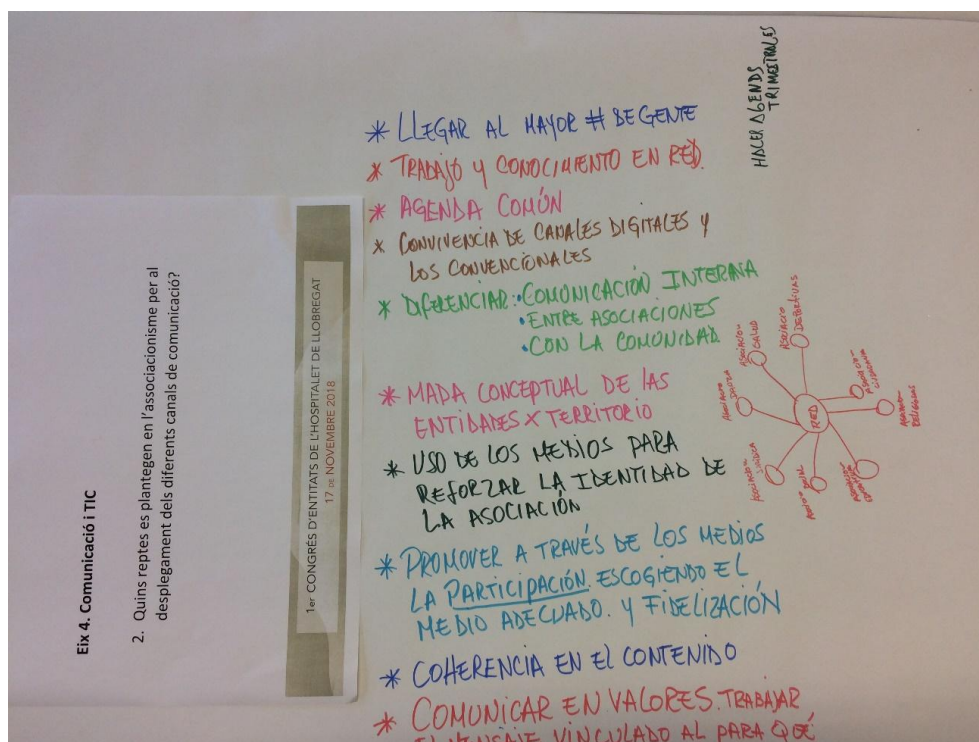 Eix 4. Comunicació i TIC
2. Quins reptes es plantegen en l'associacionisme per al
desplegament dels diferents canals de comunicació?
1er CONGRÉS D'ENTITATS DE L'HOSPITALET DE LLOBREGAT
17 DE NOVEMBRE 2018
* LLEGAR AL MAYOR # DE GENTE
* TRABAJO Y CONOCIMIENTO EN RED.
* AGENDA COMÚN
* CONVIVENCIA DE CANALES DIGITALES Y
LOS CONVENCIONALES
* DIFERENCIAR: • COMUNICACIÓN INTERNA
• ENTRE ASOCIACIONES
• CON LA COMUNIDAD
* MAPA CONCEPTUAL DE LAS
ENTIDADES X TERRITORIO
* USO DE LOS MEDIOS PARA
REFORZAR LA IDENTIDAD DE
LA ASOCIACIÓN
* PROMOVER A TRAVÉS DE LOS MEDIOS
LA PARTICIPACIÓN ESCOGIENDO EL
MEDIO ADECUADO. Y FIDELIZACIÓN
* COHERENCIA EN EL CONTENIDO
* COMUNICAR EN VALORES. TRABAJAR
EL MENSAJE VINCULADO AL PARA QUÉ
HACER AGENDS
TRIMESTRALES
RED
ASOCIACION
SALUD
ASOCIACIO
DEPORTIVAS